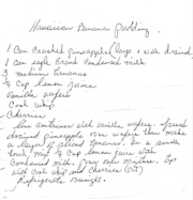 Hawaiian Banana Pudding
1 Can Crushed pineapple (large) + well drained
1 Can eagle brand Condensed milk
3 medium bananas
½ Cup lemon juice
Vanilla wafers
Cool whip
Cherries
Line container with vanilla wafers. Spread
drained pineapple over wafers then make
a layer of sliced bananas. In a
bowl, mix ½ Cup lemon juice with
Condensed milk. Pour over mixture. Top
with Cool whip and Cherries
Refrigerate